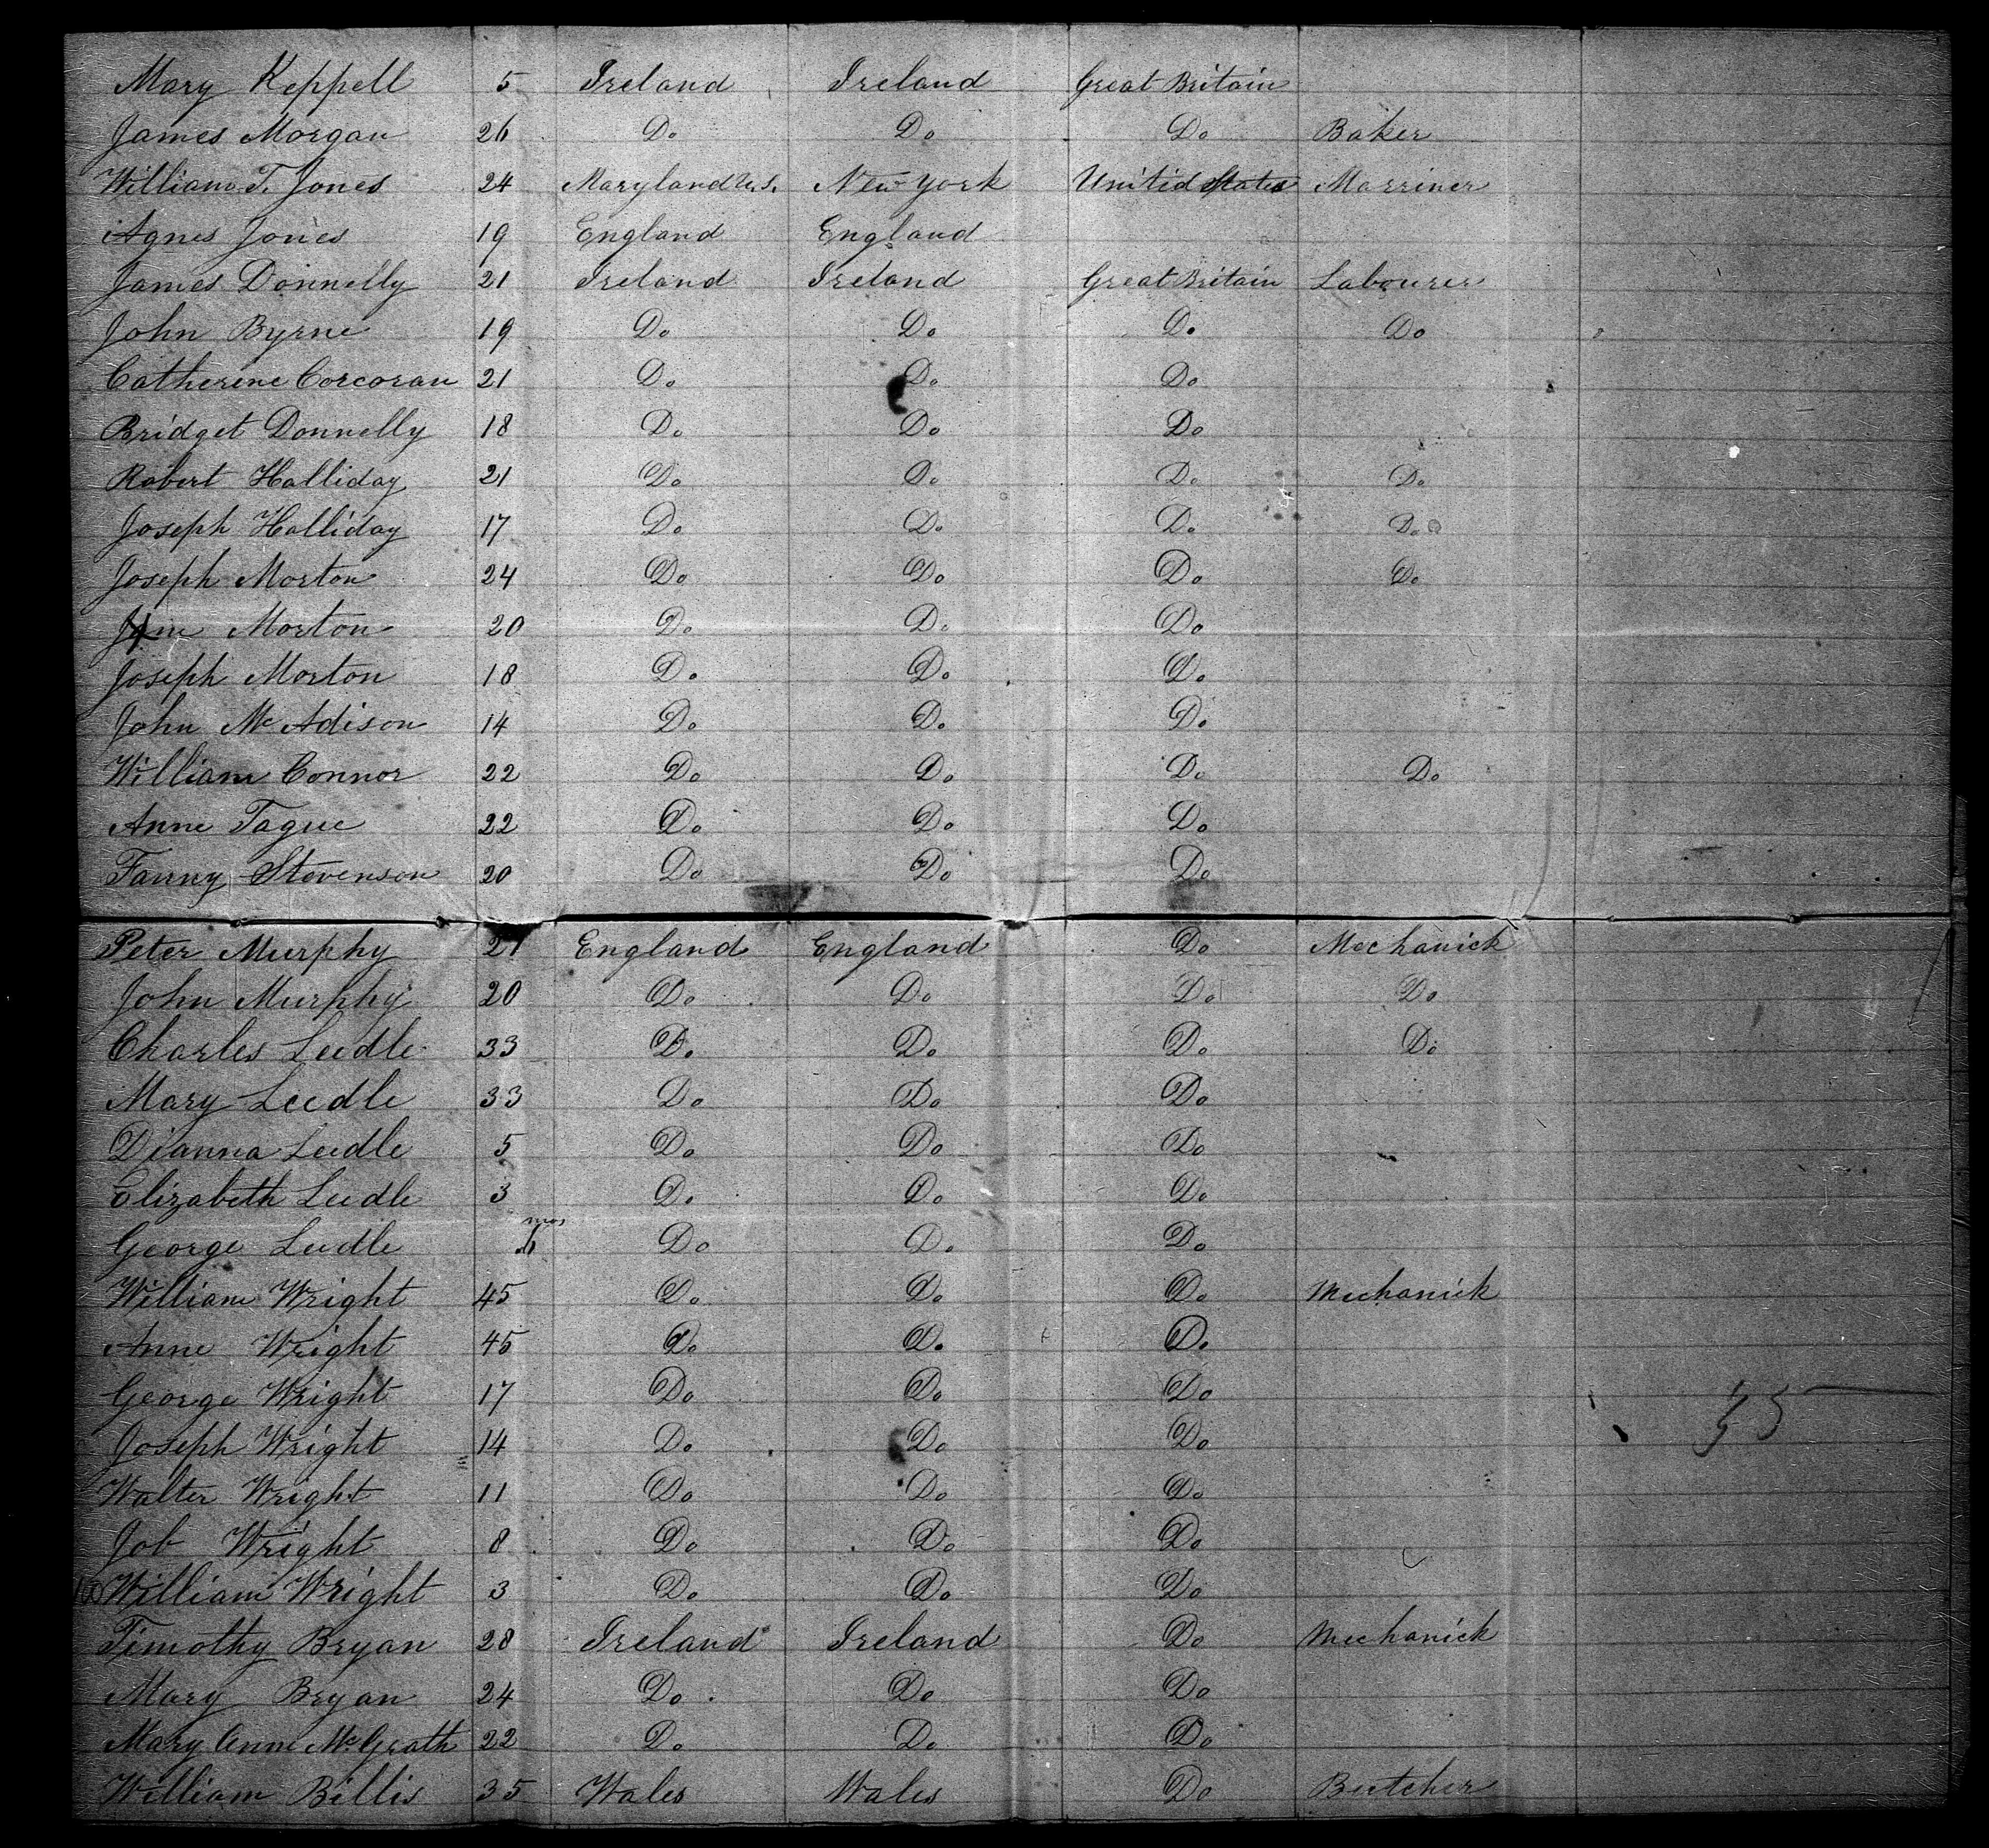 Mary Keppell 5 Ireland Ireland Great Britain
James Morgan 26 Do Do Do Baker
William T. Jones 24 Maryland U.S. New York Unitid States Marriner
Agnes Jones 19 England England
James Donnelly 21 Ireland Ireland Great Britain Labourer
John Byrne 19 Do Do Do Do
Catherine Corcoran 21 Do Do Do
Bridget Donnelly 18 Do Do Do
Robert Halliday 21 Do Do Do Do
Joseph Halliday 17 Do Do Do Do
Joseph Morton 24 Do Do Do Do
Morton 20 Do Do Do
Joseph Morton 18 Do Do Do
John McAdison 14 Do Do Do
William Connor 22 Do Do Do Do
Anne Tague 22 Do Do Do
Fanny Stevenson 20 Do Do Do
Peter Murphy 21 England England Do Mechanick
John Murphy 20 Do Do Do Do
Charles Leedle 33 Do Do Do Do
Mary Leedle 33 Do Do Do
Dianna Leedle 5 Do Do Do
Elizabeth Leedle 3 Do Do Do
George Leedle mos Do Do Do
William Wright 45 Do Do Do Mechanick
Anne Wright 45 Do Do Do
George Wright 17 Do Do Do
Joseph Wright 14 Do Do Do
Walter Wright 11 Do Do Do
Job Wright 8 Do Do Do
William Wright 3 Do Do Do
Timothy Bryan 28 Ireland Ireland Do Mechanick
Mary Bryan 24 Do Do Do
Mary Anne McGrath 22 Do Do Do
William Billis 35 Wales Wales Do Butcher